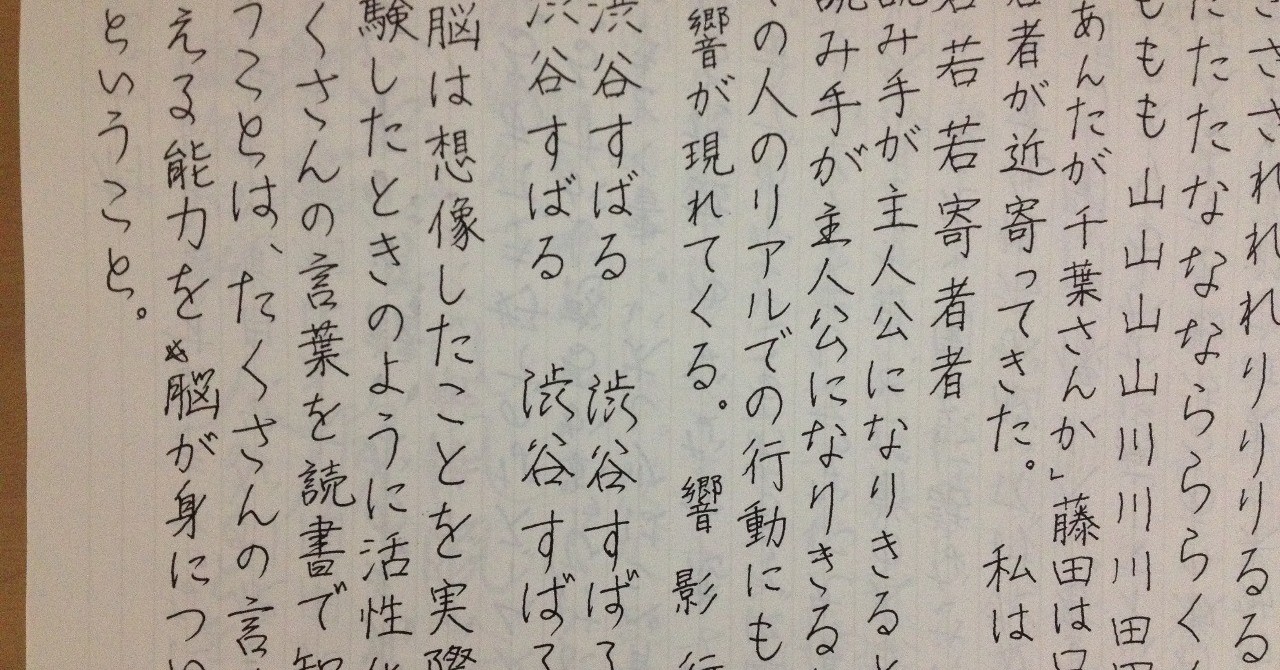 さささされれれりりりるる
たたたななならららく
ももも山山山山川川川田田
あんたが千葉さんか」藤田は口
若者が近寄ってきた。　私は
若若若寄者者
読み手が主人公になりきると
読み手が主人公になりきる
の人のリアルでの行動にも
響が現れてくる。　響　影　行
渋谷すばる　渋谷すばる
渋谷すばる　渋谷すばる
脳は想像したことを実際
験したときのように活性
くさんの言葉を読書で知
つことは、たくさんの言
える能力を脳が身につい
ということ。